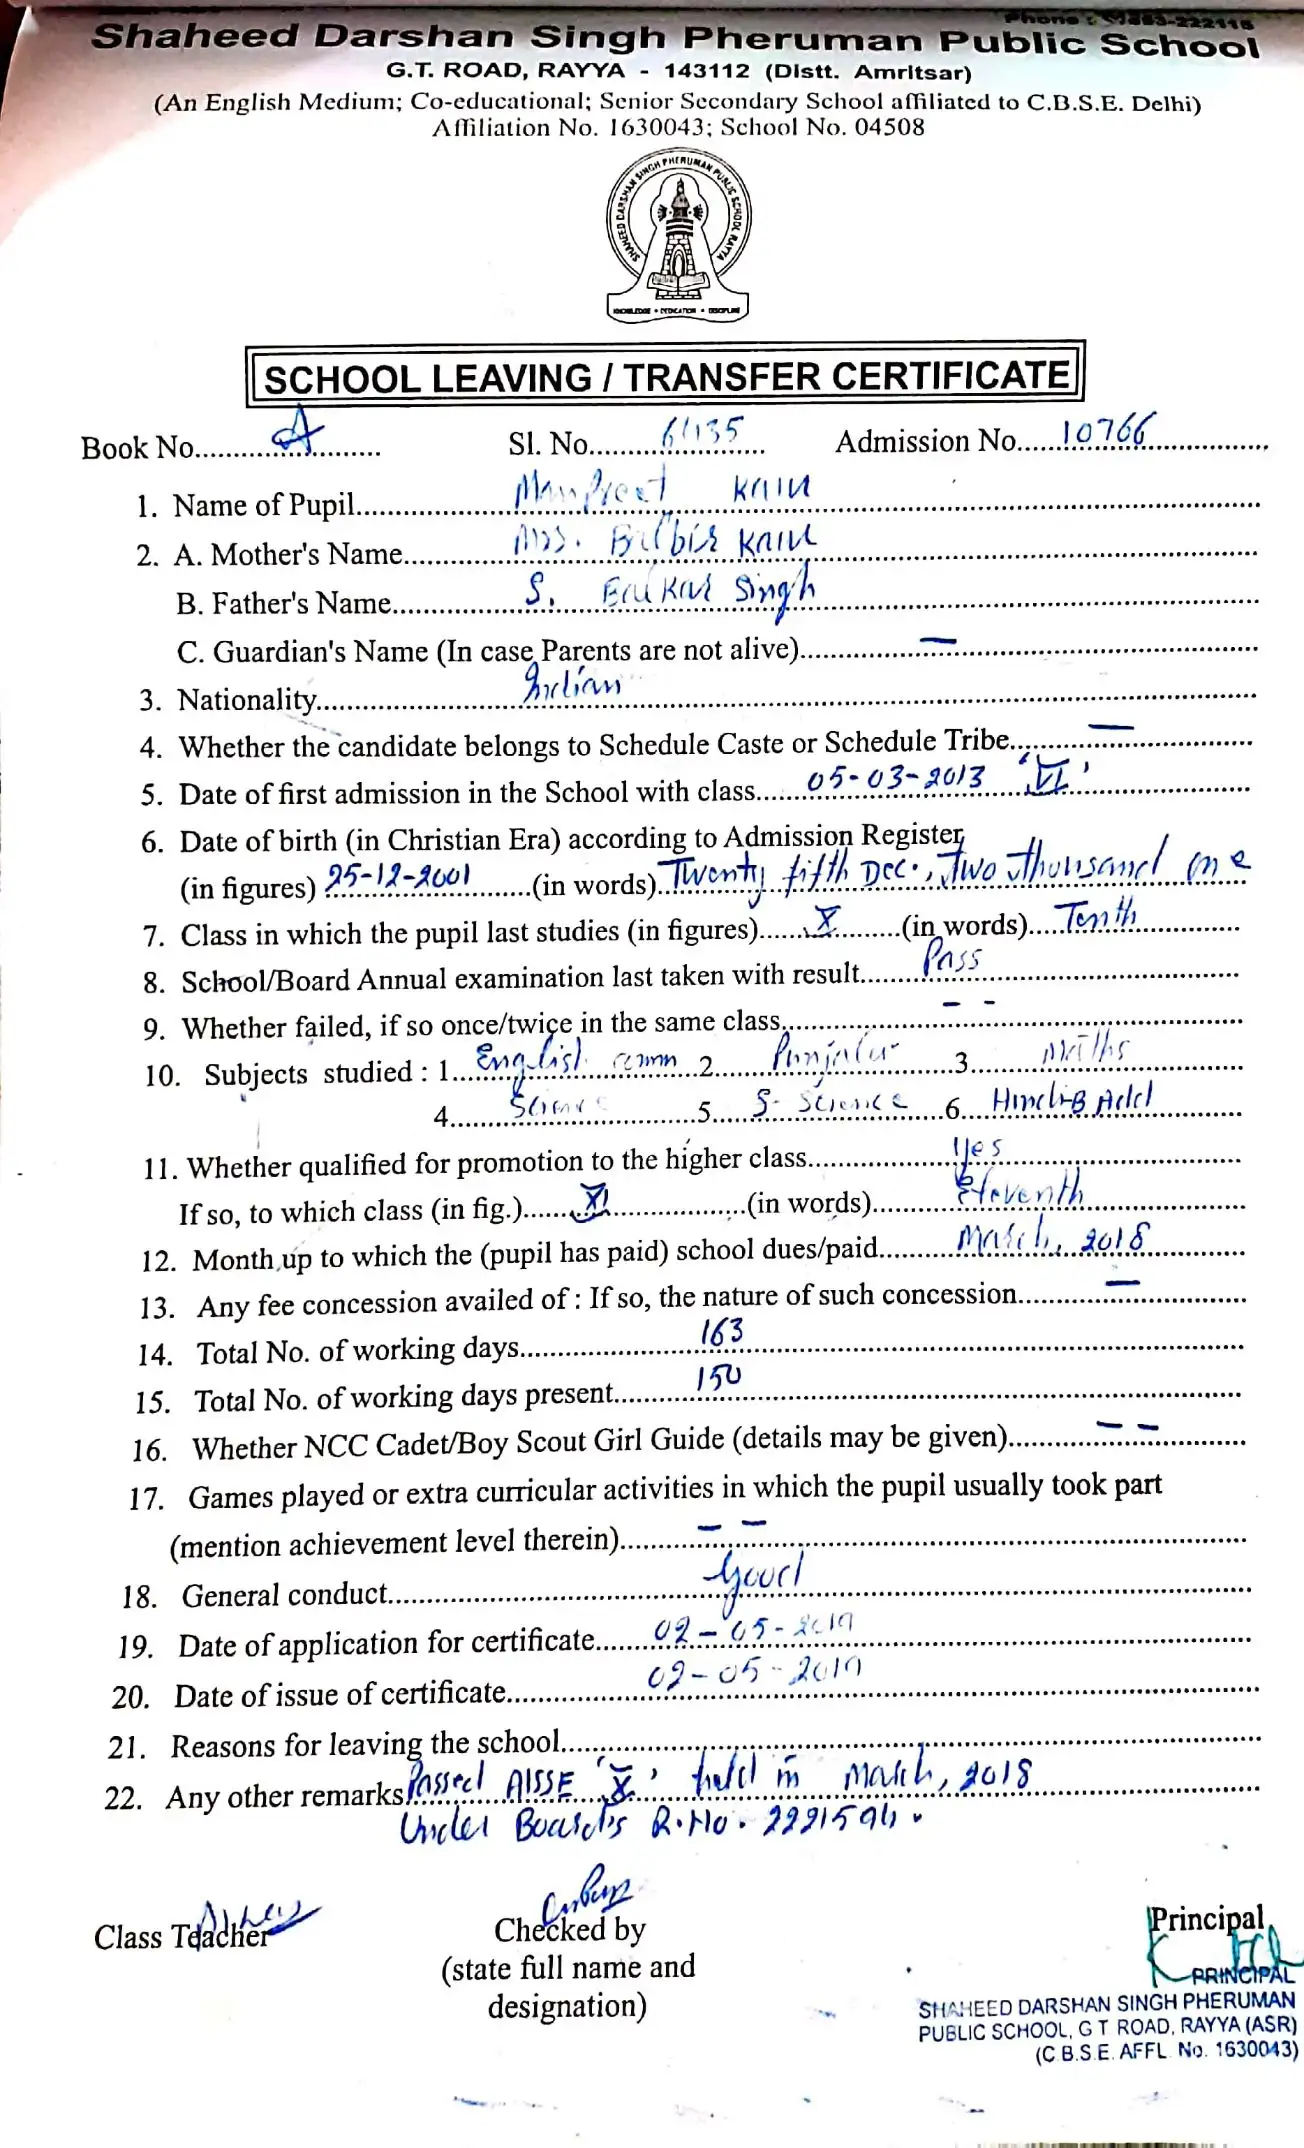 Shaheed Darshan Singh Pheruman Public School
G.T. ROAD, RAYYA - 143112 (Distt. Amritsar)
(An English Medium; Co-educational; Senior Secondary School affiliated to C.B.S.E. Delhi)
Affiliation No. 1630043; School No. 04508
SHAHEED DARSHAN SINGH PHERUMAN PUBLIC SCHOOL RAYYA
KNOWLEDGE • DEDICATION • DISCIPLINE
SCHOOL LEAVING / TRANSFER CERTIFICATE
Book No. A Sl. No. Admission No. 10766
1. Name of Pupil Manpreet Kaur
2. A. Mother's Name Mrs. Balbir Kaur
B. Father's Name S. Balkar Singh
C. Guardian's Name (In case Parents are not alive) —
3. Nationality Indian
4. Whether the candidate belongs to Schedule Caste or Schedule Tribe —
5. Date of first admission in the School with class 05-03-2013 'VI'
6. Date of birth (in Christian Era) according to Admission Register
(in figures) 25-12-2001 (in words) Twenty fifth Dec., Two Thousand one
7. Class in which the pupil last studies (in figures) X (in words) Tenth
8. School/Board Annual examination last taken with result Pass
9. Whether failed, if so once/twice in the same class - -
10. Subjects studied : 1 English comm 2 Punjabi 3 Maths
4 Science 5 S. Science 6 Hindi-B Add
11. Whether qualified for promotion to the higher class Yes
If so, to which class (in fig.) XI (in words) Eleventh
12. Month up to which the (pupil has paid) school dues/paid March, 2018
13. Any fee concession availed of : If so, the nature of such concession —
14. Total No. of working days 163
15. Total No. of working days present 150
16. Whether NCC Cadet/Boy Scout Girl Guide (details may be given) — —
17. Games played or extra curricular activities in which the pupil usually took part
(mention achievement level therein) — —
18. General conduct Good
19. Date of application for certificate 02-05-2019
20. Date of issue of certificate 02-05-2019
21. Reasons for leaving the school
22. Any other remarks Passed AISSE 'X' held in March, 2018
Under Board's R.No.
Class Teacher
Checked by
(state full name and
designation)
Principal
PRINCIPAL
SHAHEED DARSHAN SINGH PHERUMAN
PUBLIC SCHOOL, G T ROAD, RAYYA (ASR)
(C.B.S.E. AFFL. No. 1630043)